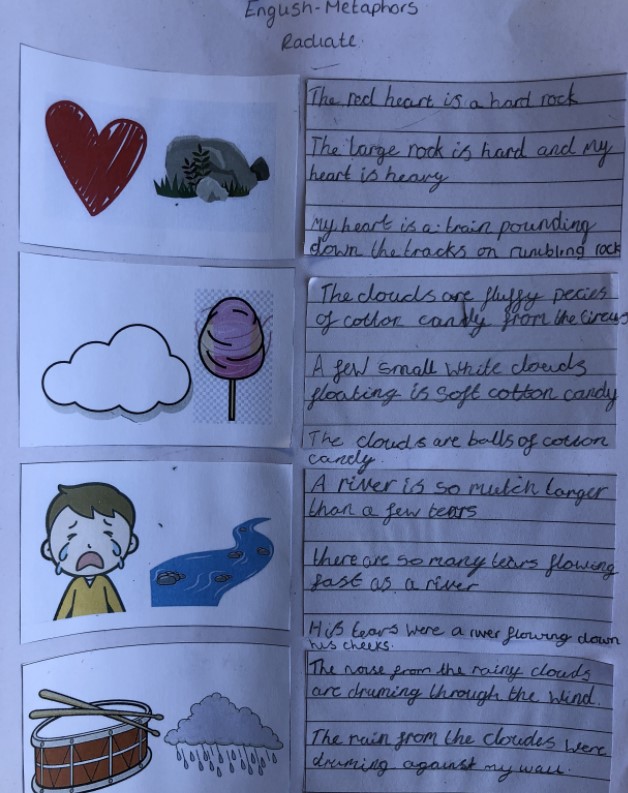 English-Metaphors
Radiate.
The red heart is a hard rock
The large rock is hard and My
heart is heavy
My heart is a train pounding
down the tracks on rumbling rock
The clouds are fluffy pecies
of cotton candy from the circus
A few small white clouds
floating is soft cotton candy
The clouds are balls of cotton
candy.
A river is so mutch larger
than a few tears
there are so many tears flowing
fast as a river
His tears were a river flowing down
his cheeks.
The noise from the rainy clouds
are druming through the wind.
The rain from the cloudes were
druming against my wall.